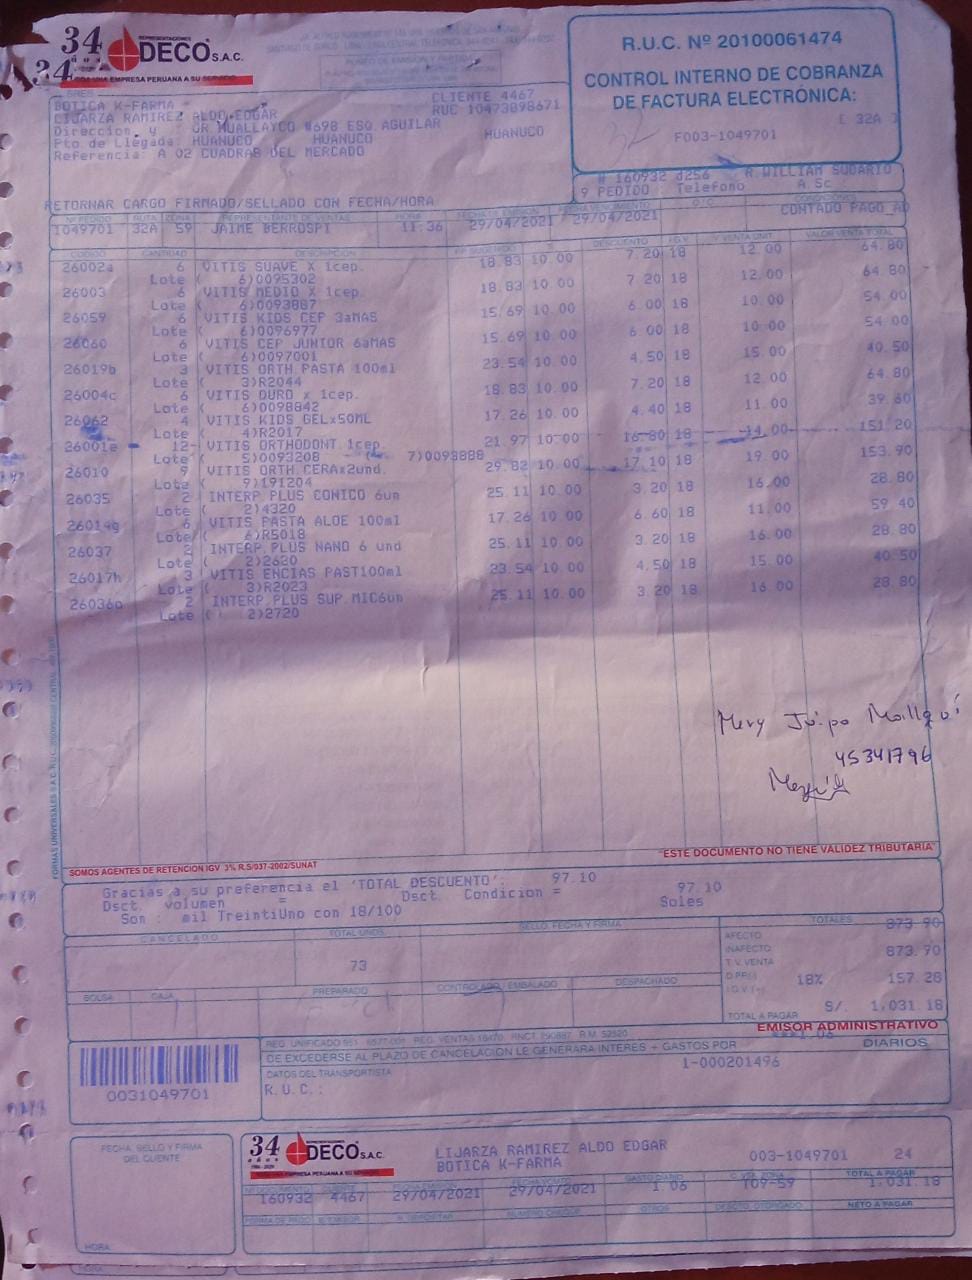 34 años REPRESENTACIONES DECO S.A.C.
UNA EMPRESA PERUANA A SU SERVICIO
R.U.C. Nº 20100061474
CONTROL INTERNO DE COBRANZA
DE FACTURA ELECTRÓNICA:
[ 32A ]
32
F003-1049701
BOTICA K-FARMA CLIENTE 4467
LIJARZA RAMIREZ ALDO EDGAR RUC 10473898671
Direccion y JR HUALLAYCO #698 ESQ AGUILAR
Pto. de Llegada: HUANUCO HUANUCO HUANUCO
Referencia: A 02 CUADRAS DEL MERCADO
# 160932 d256 R.WILLIAM SUDARIO
9 PEDIDO : Telefono A.Sc
RETORNAR CARGO FIRMADO/SELLADO CON FECHA/HORA
Nº PEDIDO RUTA ZONA REPRESENTANTE DE VENTAS HORA FECHA DE EMISION FECHA VENCIMIENTO O/C CONDICIONES
1049701 32A 59 JAIME BERROSPI 11:36 29/04/2021 29/04/2021 CONTADO PAGO_AD
CODIGO CANTIDAD DESCRIPCION P.P. SUGERIDO % DESCUENTO I.G.V. V. VENTA UNIT. VALOR VENTA TOTAL
26002a 6 VITIS SUAVE X 1cep. 18.83 10.00 7.20 18 12.00 64.80
Lote ( 6)0095302
26003 6 VITIS MEDIO X 1cep. 18.83 10.00 7.20 18 12.00 64.80
Lote ( 6)0093887
26059 6 VITIS KIDS CEP 3aMAS 15.69 10.00 6.00 18 10.00 54.00
Lote ( 6)0096977
26060 6 VITIS CEP JUNIOR 6aMAS 15.69 10.00 6.00 18 10.00 54.00
Lote ( 6)0097001
26019b 3 VITIS ORTH.PASTA 100ml 23.54 10.00 4.50 18 15.00 40.50
Lote ( 3)R2044
26004c 6 VITIS DURO x 1cep. 18.83 10.00 7.20 18 12.00 64.80
Lote ( 6)0098842
26062 4 VITIS KIDS GELx50ML 17.26 10.00 4.40 18 11.00 39.60
Lote ( 4)R2017
26001e 12 VITIS ORTHODONT.1cep. 21.97 10.00 16.80 18 14.00 151.20
Lote ( 5)0093208 7)0093888
26010 9 VITIS ORTH.CERAx2und. 29.82 10.00 17.10 18 19.00 153.90
Lote ( 9)191204
26035 2 INTERP.PLUS CONICO 6un 25.11 10.00 3.20 18 16.00 28.80
Lote ( 2)4320
26014g 6 VITIS PASTA ALOE 100ml 17.26 10.00 6.60 18 11.00 59.40
Lote ( 6)R5018
26037 2 INTERP.PLUS NANO 6 und 25.11 10.00 3.20 18 16.00 28.80
Lote ( 2)2620
26017h 3 VITIS ENCIAS PAST100ml 23.54 10.00 4.50 18 15.00 40.50
Lote ( 3)R2023
26036o 2 INTERP.PLUS SUP.MIC6un 25.11 10.00 3.20 18 16.00 28.80
Lote ( 2)2720
45341796
SOMOS AGENTES DE RETENCION IGV 3% R.S/037-2002/SUNAT
"ESTE DOCUMENTO NO TIENE VALIDEZ TRIBUTARIA"
Gracias a su preferencia el 'TOTAL DESCUENTO': 97.10
Dsct. volumen = Dsct. Condicion = 97.10
Son : mil TreintiUno con 18/100 Soles
CANCELADO TOTAL UNDS. SELLO, FECHA Y FIRMA TOTALES
73
AFECTO 873.90
INAFECTO
T.V. VENTA 873.90
18% 157.28
TOTAL A PAGAR S/. 1,031.18
BOLSA CAJA PREPARADO CONTROLADO/EMBALADO DESPACHADO
EMISOR ADMINISTRATIVO
DE EXCEDERSE AL PLAZO DE CANCELACION LE GENERARA INTERES + GASTOS POR ***1.06 DIARIOS
DATOS DEL TRANSPORTISTA 1-000201496
R.U.C.:
0031049701
FECHA, SELLO Y FIRMA
DEL CLIENTE
HORA:
34 años REPRESENTACIONES DECO S.A.C.
UNA EMPRESA PERUANA A SU SERVICIO
LIJARZA RAMIREZ ALDO EDGAR 003-1049701 24
BOTICA K-FARMA
Nº DOCUMENTO CLIENTE FECHA EMISION FECHA VENCTO GASTO DIARIO TOTAL A PAGAR
160932 4467 29/04/2021 29/04/2021 1.06 T09-59 1,031.18
FORMA DE PAGO NUMERO CHEQUE OTROS DESCTO. OTORGADO NETO A PAGAR
HORA: